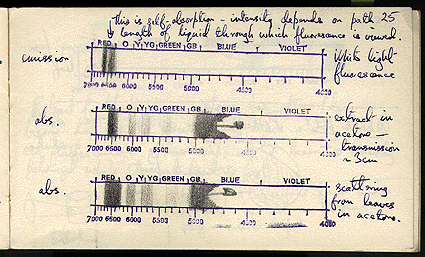 this is self-absorption - intensity depends on path 25
length of liquid through which fluorescence is viewed.
emission
RED O Y YG GREEN GB BLUE VIOLET
7000 6500 6000 5500 5000 4500 4000
White light
fluorescence
abs.
RED O Y YG GREEN GB BLUE VIOLET
7000 6500 6000 5500 5000 4500 4000
extract in
acetone -
transmission
~3cm
abs.
RED O Y YG GREEN GB BLUE VIOLET
7000 6500 6000 5500 5000 4500 4000
scattering
from leaves
in acetone.